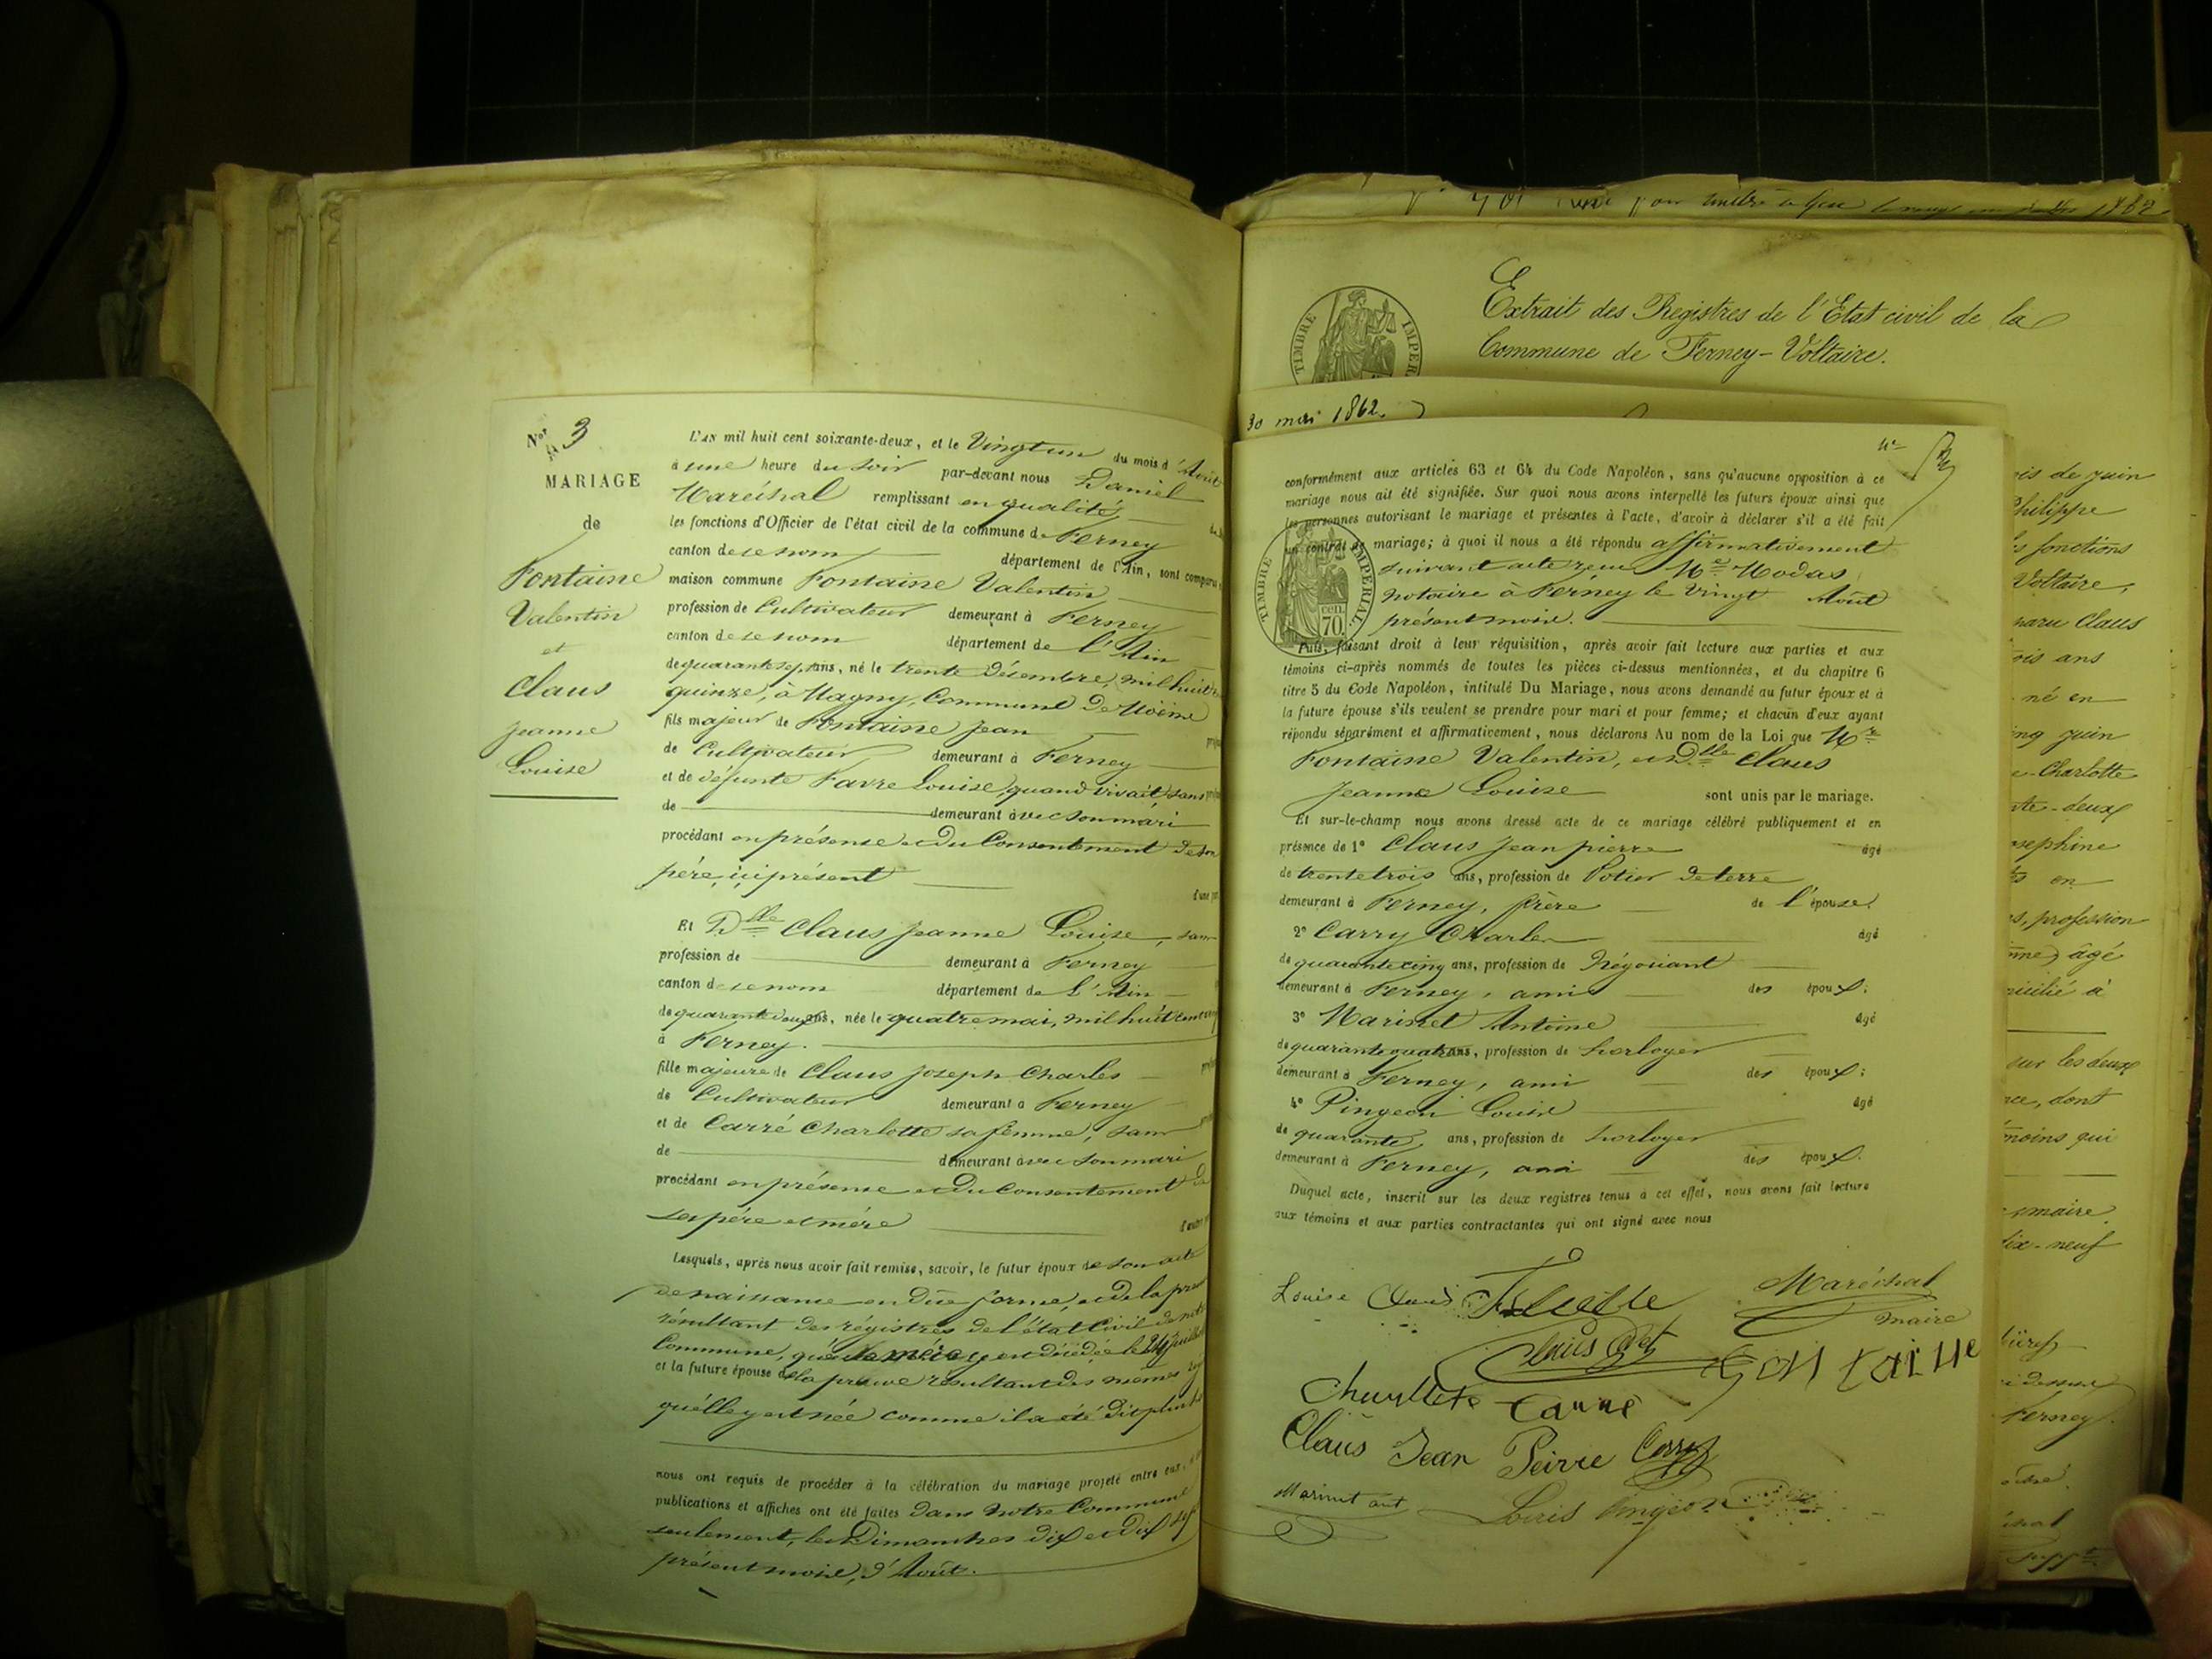 Nos 3
MARIAGE
de
Fontaine
Valentin
et
Claus
Jeanne
Louise
L'AN mil huit cent soixante-deux, et le Vingt un du mois d'Août
à une heure du soir par-devant nous Daniel
Maréchal remplissant en qualité
les fonctions d'Officier de l'état civil de la commune de Ferney
canton de ce nom département de l'Ain, sont comparus
maison commune Fontaine Valentin
profession de Cultivateur demeurant à Ferney
canton de ce nom département de l'Ain
de quarante sept ans, né le trente Décembre, mil huit
quinze, à Magny, Commune de Moëns
fils majeur de Fontaine Jean
de Cultivateur demeurant à Ferney
et de défunte Favre Louise, quand vivait, sans
de demeurant avec son mari
procédant en présence et du Consentement de son
père, ici présent
d'une part
Et Dlle Claus Jeanne Louise, sans
profession de demeurant à Ferney
canton de ce nom département de l'Ain
de quarante deux ans, née le quatre mai, mil huit cent
à Ferney.
fille majeure de Claus Joseph Charles
de Cultivateur demeurant à Ferney
et de Carré Charlotte sa femme, sans
de demeurant avec son mari
procédant en présence et du Consentement de
ses père et mère
Lesquels, après nous avoir fait remise, savoir, le futur époux de son acte
de naissance en due forme, et de la preuve
résultant des régistres de l'état Civil de notre
Commune, que sa mère y est décédée le 24 juillet
et la future épouse de la preuve résultant des mêmes
qu'elle y est née comme il a été dit plus haut
nous ont requis de procéder à la célébration du mariage projeté entre eux,
publications et affiches ont été faites dans notre Commune
seulement, les Dimanches dix et dix sept
présent mois, d'Août.
1862
Extrait des Registres de l'Etat civil de la
Commune de Ferney-Voltaire.
TIMBRE IMPER
30 mai 1862.
conformément aux articles 63 et 64 du Code Napoléon, sans qu'aucune opposition à ce
mariage nous ait été signifiée. Sur quoi nous avons interpellé les futurs époux ainsi que
les personnes autorisant le mariage et présentes à l'acte, d'avoir à déclarer s'il a été fait
un contrat de mariage; à quoi il nous a été répondu affirmativement
suivant acte reçu Me Modas
notaire à Ferney le vingt Août
présent mois.
TIMBRE IMPERIAL
cen.
70.
Puis, faisant droit à leur réquisition, après avoir fait lecture aux parties et aux
témoins ci-après nommés de toutes les pièces ci-dessus mentionnées, et du chapitre 6
titre 5 du Code Napoléon, intitulé Du Mariage, nous avons demandé au futur époux et à
la future épouse s'ils veulent se prendre pour mari et pour femme; et chacun d'eux ayant
répondu séparément et affirmativement, nous déclarons Au nom de la Loi que Mr
Fontaine Valentin, et Dlle Claus
Jeanne Louise sont unis par le mariage.
Et sur-le-champ nous avons dressé acte de ce mariage célébré publiquement et en
présence de 1° Claus Jean pierre âgé
de trente trois ans, profession de Potier de terre
demeurant à Ferney, frère de l'épouse.
2° Carry Charles âgé
de quarante cinq ans, profession de Négociant
demeurant à Ferney, ami des époux;
3° Marinet Antoine âgé
de quarante quatre ans, profession de horloger
demeurant à Ferney, ami des époux;
4° Pingeon Louis âgé
de quarante, ans, profession de horloger
demeurant à Ferney, ami des époux.
Duquel acte, inscrit sur les deux registres tenus à cet effet, nous avons fait lecture
aux témoins et aux parties contractantes qui ont signé avec nous
Louise Claus
Maréchal
maire
Fontaine
Charllote Carré
Claus Jean Peirre Carry
Marinet ant
Louis Pingeon
is de juin
Philippe
s fonctions
Voltaire,
paru Claus
ois ans
né en
ng juin
Charlotte
te-deux
osephine
en
s, profession
âgé
icilié à
sur les deux
ce, dont
moins qui
maire
dix-neuf
Ferney